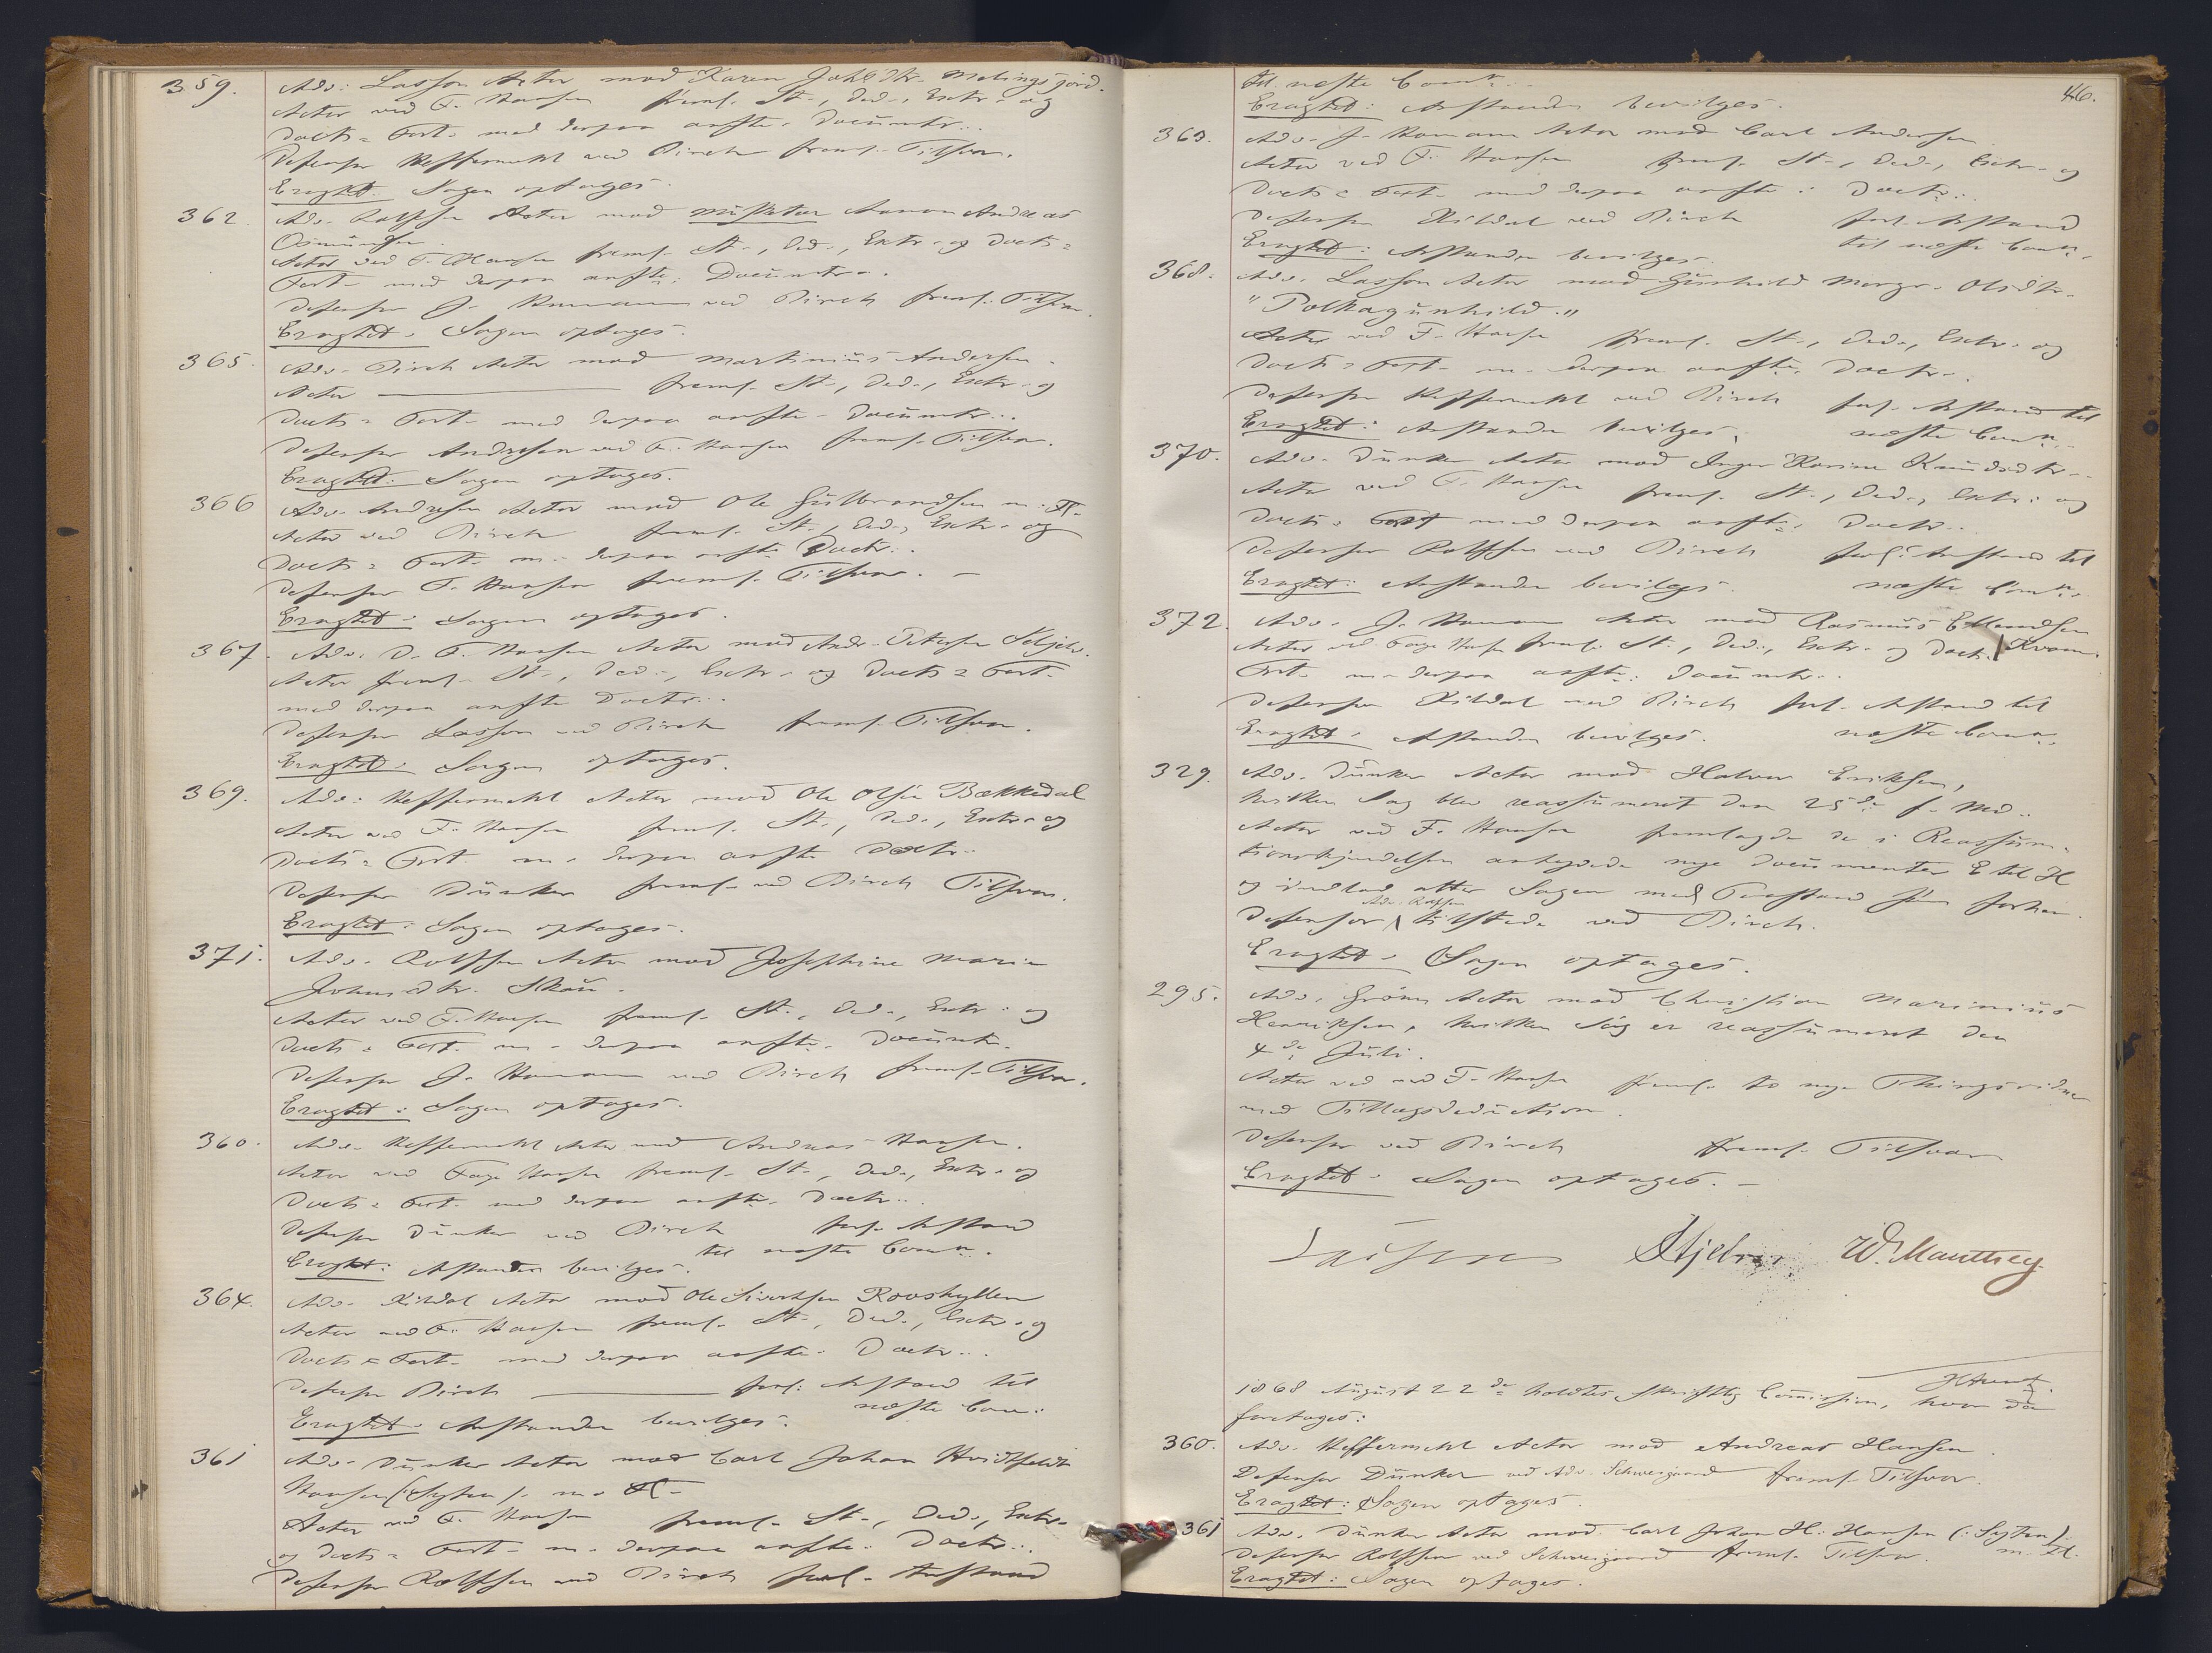 359. Adv: Lasson Actor mod Karen Johsdtr. Melingsjord.
Actor ved F. Hansen freml. St., Ded., Extr. og
Docts = Fort. med derpaa anførte Documtr..
Defensor Heffermehl ved Birch freml. Tilsvar.
Eragtet. Sagen optages.
362. Adv. Rolfsen Actor mod Musketer Aanon Andreas
Osmundsen.
Actor ved F. Hansen freml. St., Ded., Extr. og Docts =
Fort. med derpaa anfte: Documtr..
Defensor J. Homann ved Birch freml. Tilsvar.
Eragtet. Sagen optages.
365. Adv. Birch Actor mod Martinius Andersen.
Actor freml. St., Ded., Extr. og
Docts = Fort. med derpaa anfte. Documtr..
Defensor Andresen ved F. Hansen freml. Tilsvar.
Eragtet: Sagen optages.
366 Adv. Andresen Actor mod Ole Gulbrandsen m: Fl.
Actor ved Birch freml. St., Ded., Extr. og
Docts = Fort. m. derpaa anfte Doctr..
Defensor F. Hansen freml. Tilsvar. –
Eragtet: Sagen optages.
367. Adv. D. F. Hansen Actor mod Andr. Petersen
Actor freml. St., Ded., Extr. og Docts = Fort.
med derpaa anfte Doctr..
Defensor Lasson ved Birch freml. Tilsvar.
Eragtet: Sagen optages.
369. Adv: Heffermehl Actor mod Ole Olsen Bækkedal
Actor ved F. Hansen freml. St., Ded., Extr. og
Docts = Fort. m. derpaa anfte Doctr.
Defensor Dunker freml. ved Birch Tilsvar.
Eragtet: Sagen optages.
371. Adv. Rolfsen Actor mod Josephine Marie
Johnsdtr. Skau.
Actor ved F. Hansen freml. St., Ded., Extr. og
Docts = Fort. m. derpaa anfte. Documtr.
Defensor J. Homann ved Birch freml. Tilsvar.
Eragtet: Sagen optages.
360. Adv. Heffermehl Actor mod Andreas Hansen.
Actor ved Faye Hansen freml. St., Ded., Extr. og
Docts = Fort. med derpaa anfte. Doctr..
Defensor Dunker ved Birch forl. Anstand
til næste Comn.
Eragtet: Anstanden bevilges.
364. Adv. Kildal Actor mod Ole Sivertsen Rovshyllen
Actor ved F. Hansen freml. St., Ded., Extr. og
Docts = Fort. med derpaa anfte. Doctr..
Defensor Birch forl: Anstand til
næste Com:
Eragtet: Anstanden bevilges.
361 Adv. Dunker Actor mod Carl Johan Hvidtfeldt
Hansen (: Syten). m. Fl.
Actor ved F. Hansen freml. St., Ded., Extr.
og Docts = Fort. m. derpaa anfte. Doctr..
Defensor Rolfsen ved Birch forl. Anstand
46.
til næste Comn..
Eragtet: Anstanden bevilges.
363. Adv. J. Homann Actor mod Carl Andersen
Actor ved F. Hansen freml. St., Ded., Extr. og
Docts = Fort. med derpaa anfte: Doctr..
Defensor Kildal ved Birch forl. Anstand
til næste Comn.
Eragtet: Anstanden bevilges.
368. Adv. Lasson Actor mod Gunhild Margr. Olsdtr.
"Polkagunhild."
Actor ved F. Hansen freml. St., Ded., Extr. og
Docts = Fort. m. derpaa anfte. Doctr..
Defensor Heffermehl ved Birch forl. Anstand til
næste Comn.
Eragtet: Anstanden bevilges.
370. Adv. Dunker Actor mod Inger Karine Knudsdtr.
Actor ved F. Hansen freml. St., Ded., Extr: og
Docts = Fort med derpaa anfte. Doctr..
Defensor Rolfsen ved Birch forl: Anstand til
næste Comn.
Eragtet: Anstanden bevilges.
372. Adv. J. Homann Actor mod Rasmus Ellendsen
Kvam.
Actor ved Faye Hansen freml. St., Ded., Extr. og Docts =
Fort. m. derpaa anfte: Documtr..
Defensor Kildal ved Birch forl. Anstand til
næste Comn.
Eragtet: Anstanden bevilges.
329. Adv. Dunker Actor mod Halvor Eriksen,
hvilken Sag blev reassumeret den 25de f. Md..
Actor ved F. Hansen fremlagde de i Reassum-
tionskjendelsen anhevede nye Documenter E til H
og indlod atter Sagen med Paastand som forhen.
Adv. Rolfsen
Defensor tilstede ved Birch.
Eragtet: Sagen optages.
295. Adv. Grönn Actor mod Christian Marinius
Henriksen, hvilken Sag er reassumeret den
4de Juli.
Actor ved ved F. Hansen freml. to nye Thingsvidner
med Tillægsdeduction.
Defensor ved Birch freml. Tilsvar
Eragtet: Sagen optages. –
Lassen W. Manthey
1868 August 22de holdtes skriftlig Commission, hvor da
foretoges:
360. Adv. Heffermehl Actor mod Andreas Hansen.
Defensor Dunker ved Adv. Schweigaard freml. Tilsvar.
Eragtet: Sagen optages.
361 Adv. Dunker Actor mod Carl Johan H: Hansen (: Syten).
m. Fl.
Defensor Rolfsen ved Schweigaard freml. Tilsvar.
Eragtet: Sagen optages.